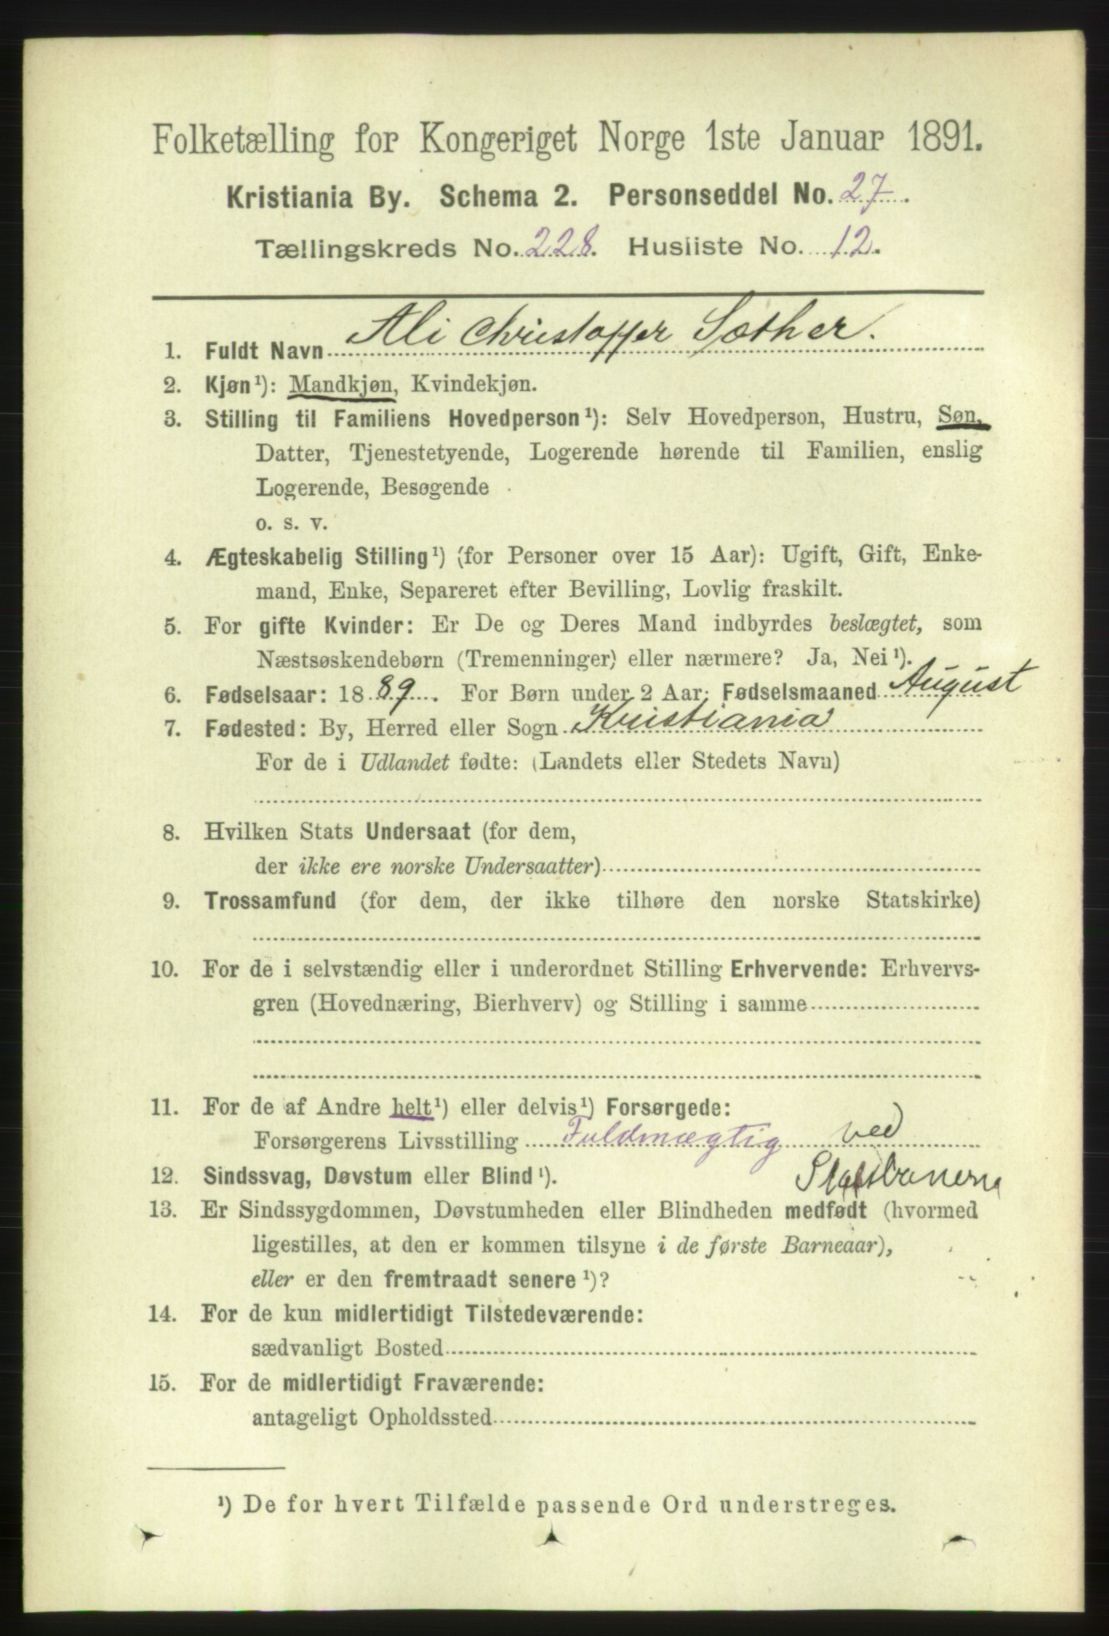 Folketælling for Kongeriget Norge 1ste Januar 1891.
Kristiania By. Schema 2. Personseddel No. 27.
Tællingskreds No. 228. Husliste No. 12.
1. Fuldt Navn Ali Christoffer Sæther.
2. Kjøn¹): Mandkjøn, Kvindekjøn.
3. Stilling til Familiens Hovedperson¹): Selv Hovedperson, Hustru, Søn,
Datter, Tjenestetyende, Logerende hørende til Familien, enslig
Logerende, Besøgende
o. s. v.
4. Ægteskabelig Stilling¹) (for Personer over 15 Aar): Ugift, Gift, Enke-
mand, Enke, Separeret efter Bevilling, Lovlig fraskilt.
5. For gifte Kvinder: Er De og Deres Mand indbyrdes beslægtet, som
Næstsøskendebørn (Tremenninger) eller nærmere? Ja, Nei¹).
6. Fødselsaar: 1889. For Børn under 2 Aar: Fødselsmaaned August
7. Fødested: By, Herred eller Sogn Kristiania
For de i Udlandet fødte: (Landets eller Stedets Navn)
8. Hvilken Stats Undersaat (for dem,
der ikke ere norske Undersaatter)
9. Trossamfund (for dem, der ikke tilhøre den norske Statskirke)
10. For de i selvstændig eller i underordnet Stilling Erhvervende: Erhvervs-
gren (Hovednæring, Bierhverv) og Stilling i samme
11. For de af Andre helt¹) eller delvis¹) Forsørgede:
Forsørgerens Livsstilling Fuldmægtig ved
12. Sindssvag, Døvstum eller Blind¹). Statsbanerne
13. Er Sindssygdommen, Døvstumheden eller Blindheden medfødt (hvormed
ligestilles, at den er kommen tilsyne i de første Barneaar),
eller er den fremtraadt senere¹)?
14. For de kun midlertidigt Tilstedeværende:
sædvanligt Bosted
15. For de midlertidigt Fraværende:
antageligt Opholdssted
¹) De for hvert Tilfælde passende Ord understreges.